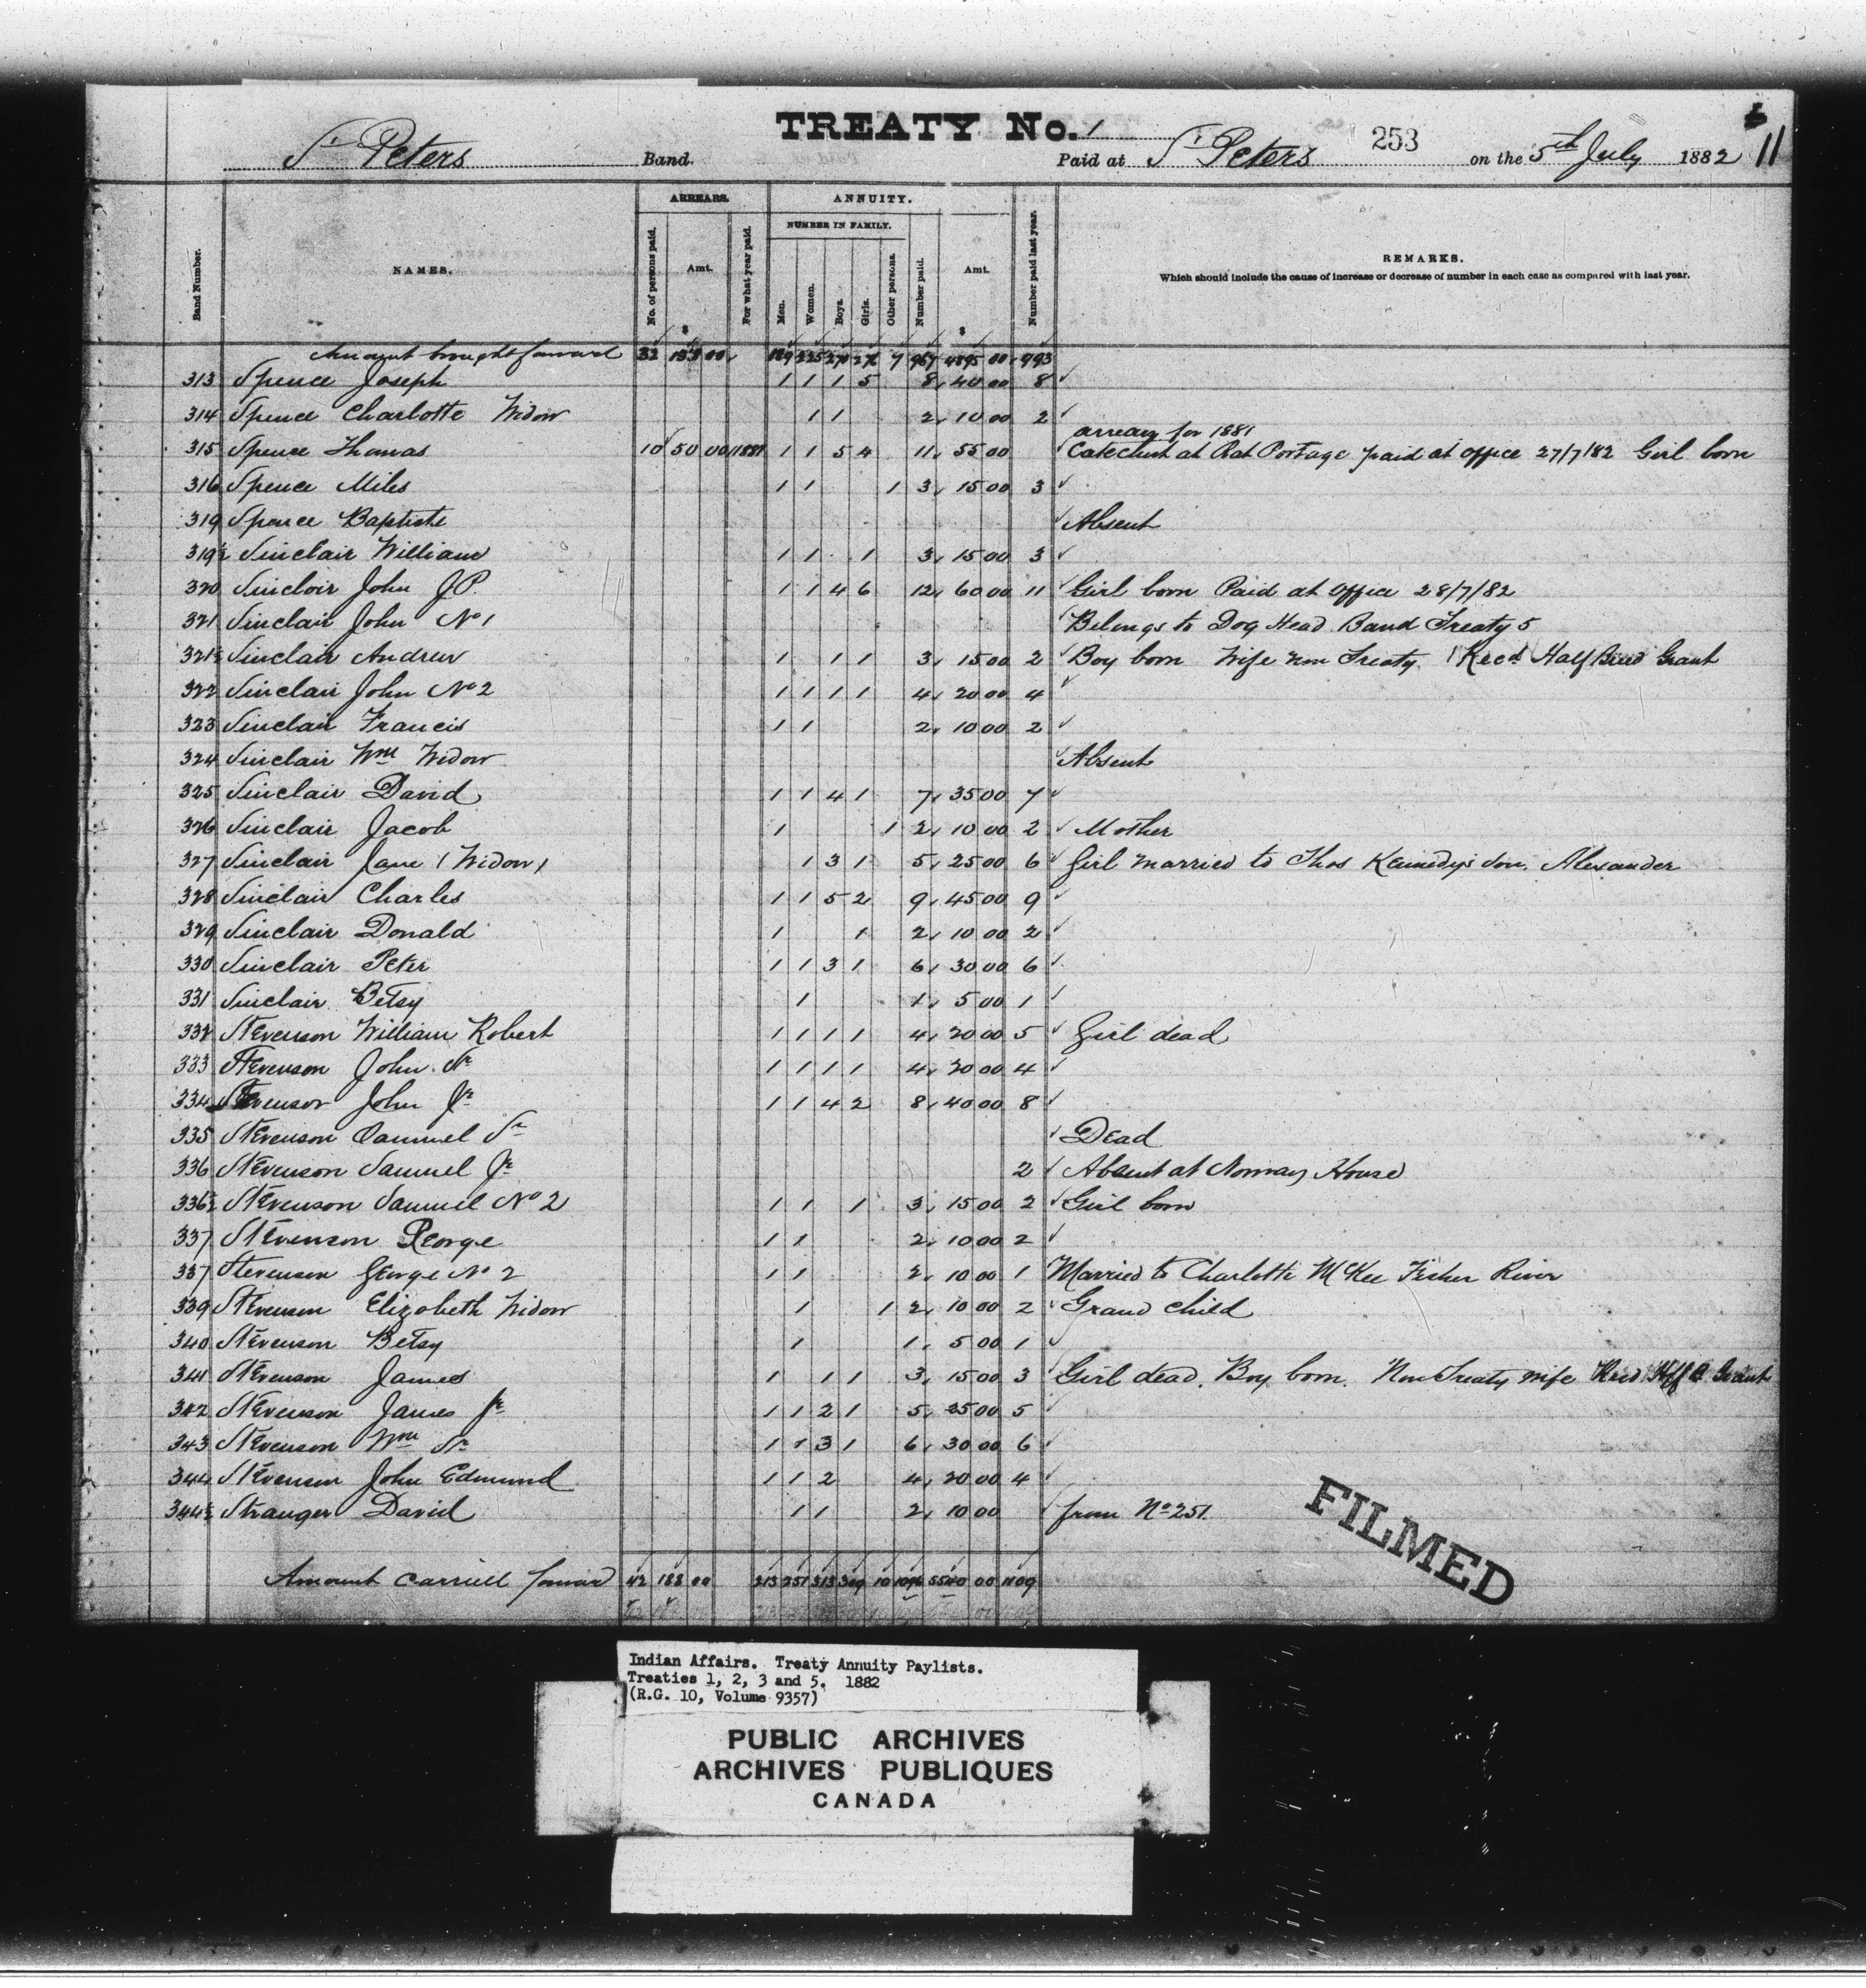 TREATY No. 1
253
11
St Peters Band. Paid at St Peters on the 5th July 1882
ARREARS. ANNUITY.
NUMBER IN FAMILY.
Band Number. NAMES. No. of persons paid. Amt. For what year paid. Men. Women. Boys. Girls. Other persons. Number paid. Amt. Number paid last year. REMARKS.
Which should include the cause of increase or decrease of number in each case as compared with last year.
$ $
Amount brought forward 32 00 7 967 4895 00 993
313 Spence Joseph 1 1 1 5 8 40 00 8
314 Spence Charlotte Widow 1 1 2 10 00 2
arrears for 1881
315 Spence Thomas 10 50 00 1881 1 1 5 4 11 55 00 Catechist at Rat Portage paid at office 27/7/82 Girl born
316 Spence Miles 1 1 1 3 15 00 3
319 Spence Baptiste Absent
319½ Sinclair William 1 1 1 3 15 00 3
320 Sinclair John JP. 1 1 4 6 12 60 00 11 Girl born Paid at office 28/7/82
321 Sinclair John No 1 Belongs to Dog Head Band Treaty 5
321½ Sinclair Andrew 1 1 1 3 15 00 2 Boy born Wife non Treaty Recd Half Breed Grant
322 Sinclair John No 2 1 1 1 1 4 20 00 4
323 Sinclair Francis 1 1 2 10 00 2
324 Sinclair Wm Widow Absent
325 Sinclair David 1 1 4 1 7 35 00 7
326 Sinclair Jacob 1 1 2 10 00 2 Mother
327 Sinclair Jane (Widow) 1 3 1 5 25 00 6 Girl married to Thos Kennedy's son. Alexander
328 Sinclair Charles 1 1 5 2 9 45 00 9
329 Sinclair Donald 1 1 2 10 00 2
330 Sinclair Peter 1 1 3 1 6 30 00 6
331 Sinclair Betsy 1 1 5 00 1
332 Stevenson William Robert 1 1 1 1 4 20 00 5 Girl dead
333 Stevenson John Sr 1 1 1 1 4 20 00 4
334 Stevenson John Jr 1 1 4 2 8 40 00 8
335 Stevenson Samuel Sr Dead
336 Stevenson Samuel Jr 2 Absent at Norway House
336½ Stevenson Samuel No 2 1 1 1 3 15 00 2 Girl born
337 Stevenson George 1 1 2 10 00 2
337 Stevenson George No 2 1 1 2 10 00 1 Married to Charlotte McKee Fisher River
339 Stevenson Elizabeth Widow 1 1 2 10 00 2 Grand child
340 Stevenson Betsy 1 1 5 00 1
341 Stevenson James 1 1 1 3 15 00 3 Girl dead. Boy born. Non Treaty wife Recd Grant
342 Stevenson James Jr 1 1 2 1 5 25 00 5
343 Stevenson Wm Sr 1 1 3 1 6 30 00 6
344 Stevenson John Edmund 1 1 2 4 20 00 4
344½ Stranger David 1 1 2 10 00 from No 251.
Amount carried forward 42 183 00 213 251 313 309 10 1096 5540 00 1109
FILMED
Indian Affairs. Treaty Annuity Paylists.
Treaties 1, 2, 3 and 5. 1882
(R.G. 10, Volume 9357)
PUBLIC ARCHIVES
ARCHIVES PUBLIQUES
CANADA